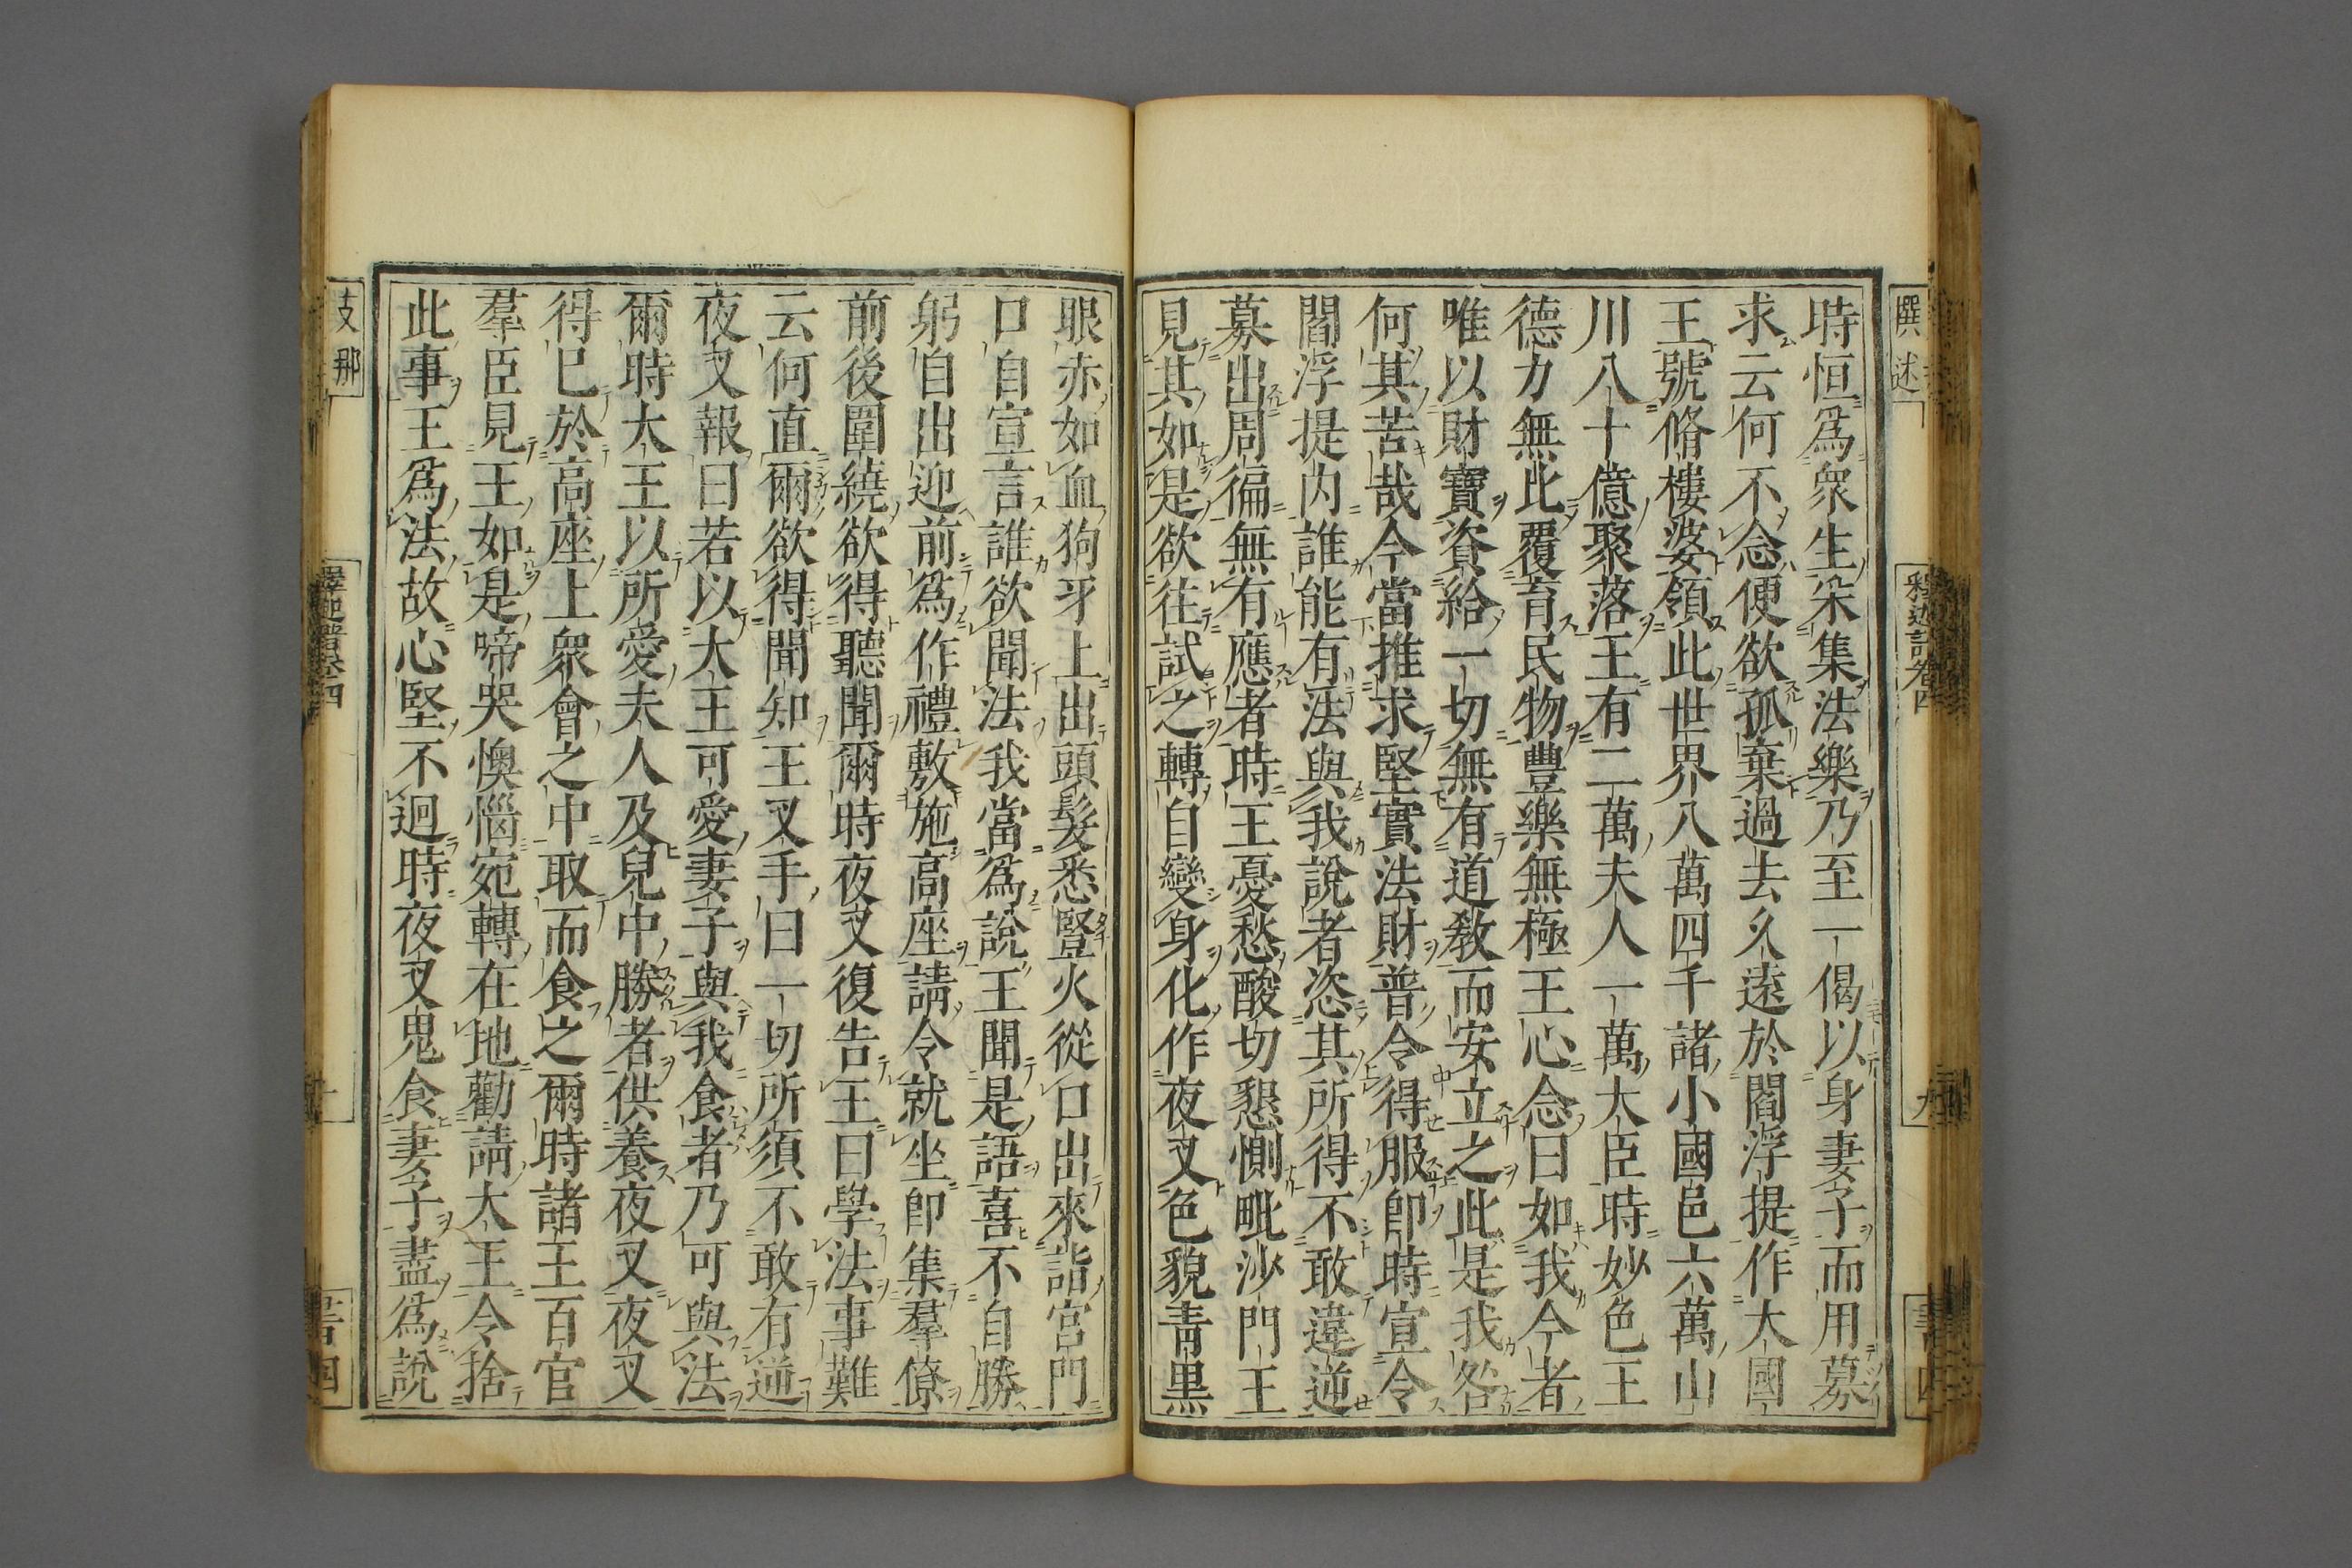 時恒爲衆生采集法樂乃至一偈以身妻子而用募
求云何不念便欲孤棄過去久遠於閻浮提作大國
王號脩樓婆領此世界八萬四千諸小國邑六萬山
川八十億聚落王有二萬夫人一萬大臣時妙色王
德力無此覆育民物豐樂無極王心念曰如我今者
唯以財寶資給一切無有道敎而安立之此是我咎
何其苦哉今當推求堅實法財普令得服卽時宣令
閻浮提内誰能有法與我說者恣其所得不敢違逆
募出周徧無有應者時王憂愁酸切懇惻毗沙門王
見其如是欲往試之轉自變身化作夜叉色貌靑黒
眼赤如血狗牙上出頭髮悉豎火從口出來詣宮門
口自宣言誰欲聞法我當爲說王聞是語喜不自勝
躬自出迎前爲作禮敷施高座請令就坐卽集羣僚
前後圍繞欲得聽聞爾時夜叉復告王曰學法事難
云何直爾欲得聞知王叉手曰一切所須不敢有逆
夜叉報曰若以大王可愛妻子與我食者乃可與法
爾時大王以所愛夫人及兒中勝者供養夜叉夜叉
得已於高座上衆會之中取而食之爾時諸王百官
羣臣見王如是啼哭懊惱宛轉在地勸請大王令捨
此事王爲法故心堅不迴時夜叉鬼食妻子盡爲說
撰述
釋迦譜卷四
九
書四
支那
釋迦譜卷四
書四